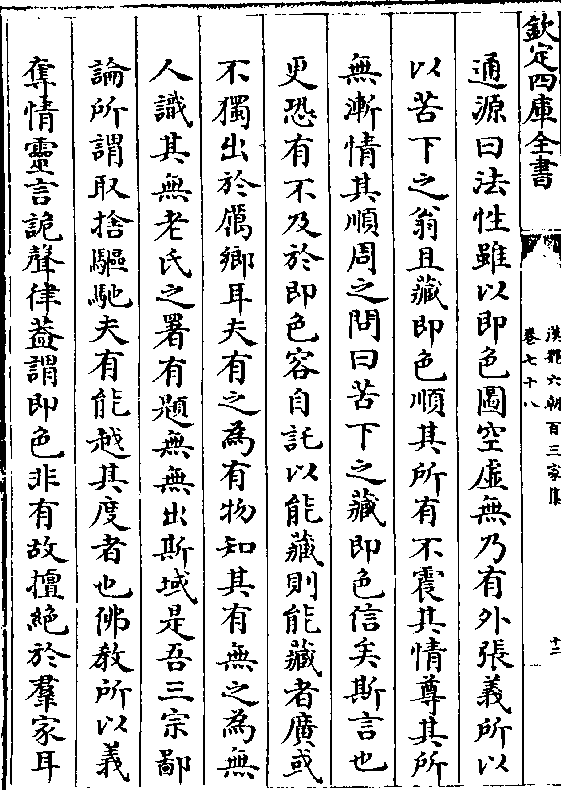 欽定四庫全書
漢魏六朝百三家集
卷七十八
十二
通源曰法性雖以即色圖空虛無乃有外張義所以
以苦下之翁且藏即色順其所有不震其情尊其所
無漸情其順周之問曰苦下之藏即色信矣斯言也
更恐有不及於即色容自託以能藏則能藏者廣或
不獨出於厲鄉耳夫有之為有物知其有無之為無
人識其無老氏之署有題無無出斯域是吾三宗鄙
論所謂取捨驅馳夫有能越其度者也佛教所以義
奪情靈言詭聲律蓋謂即色非有故擅絕於羣家耳